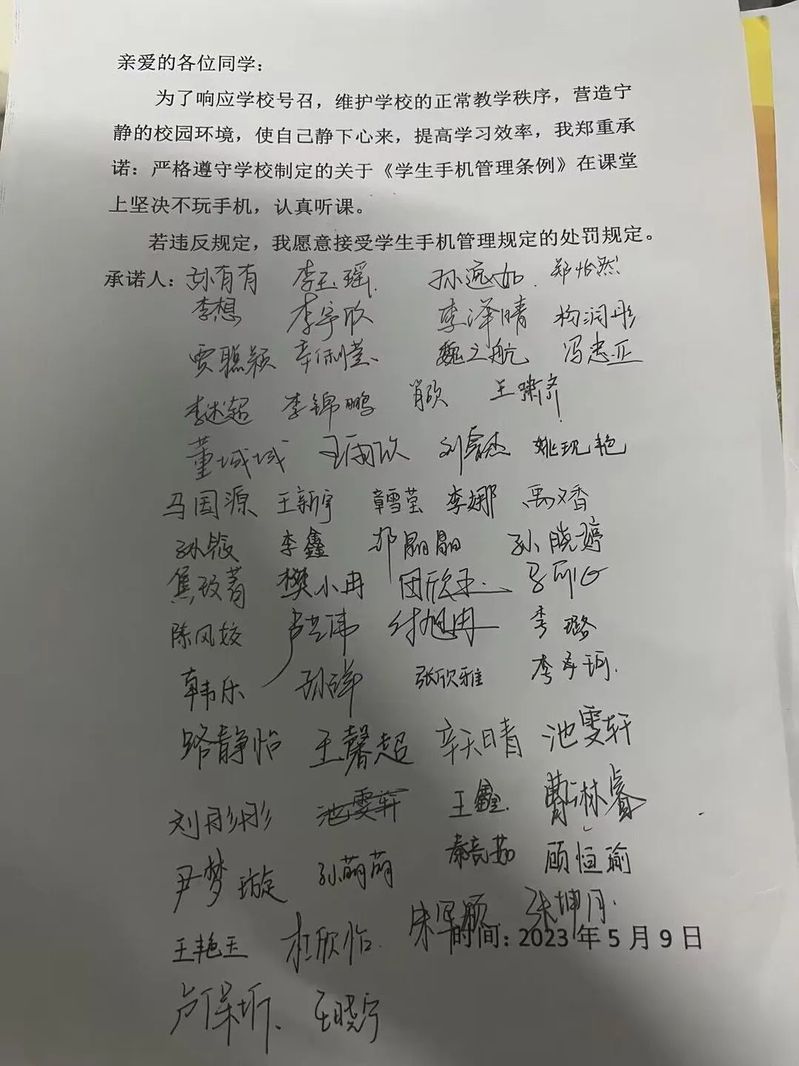 亲爱的各位同学：
为了响应学校号召，维护学校的正常教学秩序，营造宁
静的校园环境，使自己静下心来，提高学习效率，我郑重承
诺：严格遵守学校制定的关于《学生手机管理条例》在课堂
上坚决不玩手机，认真听课。
若违反规定，我愿意接受学生手机管理规定的处罚规定。
承诺人：孙有有 李玉瑶 孙逸如 郑怡然
李想 李宇欣 李泽晴
贾聪颖 辛俐莹 魏之航 冯忠正
李述超 李锦鹏 肖欣 王啸齐
董域域 王雨欣 刘鑫杰 姚现艳
马国源 王新宇 章雪莹 李娜 禹文香
李鑫 邢晶晶 孙晓婷
焦玫菁 樊小冉
陈风姣 卢艺玮 付旭冉 李璐
韩乐 孙祥 张欣雅
路静怡 王馨超 辛天晴 池雯轩
刘彤彤 池雯轩 王鑫 曹琳睿
尹梦璇 孙萌萌 秦言茹 顾恒瑜
王艳玉 杜欣怡 宋军颖 张坤月
时间：2023 年 5 月 9 日
卢保圻 王晓宁